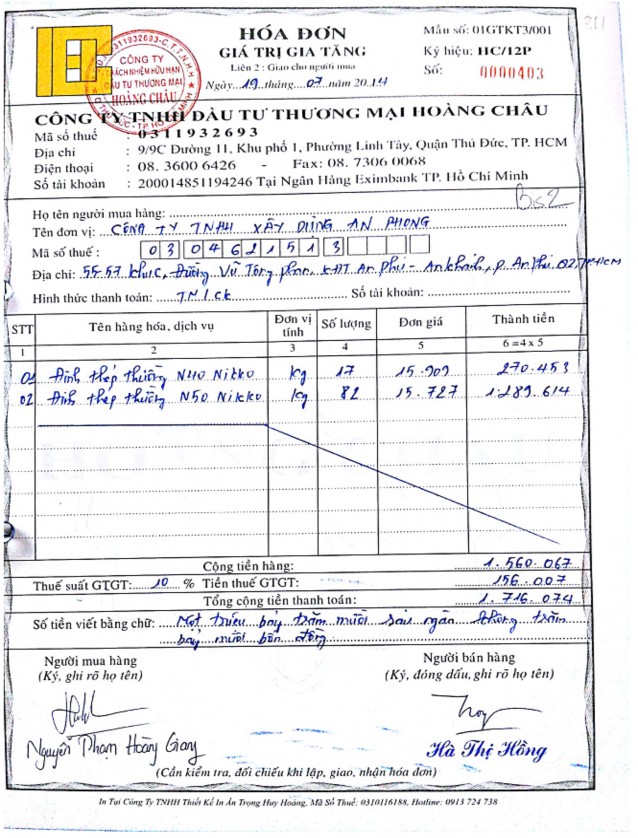 311
HÓA ĐƠN
GIÁ TRỊ GIA TĂNG
Liên 2: Giao cho người mua
Ngày 19 tháng 07 năm 2014
Mẫu số: 01GTKT3/001
Ký hiệu: HC/12P
Số: 0000403
CÔNG TY
TRÁCH NHIỆM HỮU HẠN
ĐẦU TƯ THƯƠNG MẠI
HOÀNG CHÂU
CÔNG TY TNHH ĐẦU TƯ THƯƠNG MẠI HOÀNG CHÂU
Mã số thuế : 0311932693
Địa chỉ : 9/9C Đường 11, Khu phố 1, Phường Linh Tây, Quận Thủ Đức, TP. HCM
Điện thoại : 08. 3600 6426 - Fax: 08. 7306 0068
Số tài khoản : 200014851194246 Tại Ngân Hàng Eximbank TP. Hồ Chí Minh
Họ tên người mua hàng:
Tên đơn vị: CÔNG TY TNHH XÂY DỰNG AN PHONG
Mã số thuế: 0304621513
Địa chỉ: 55-57 khu C, Đường Vũ Tông phan, KĐT An Phú - An Khánh, p. An Phú Q2, TP HCM
Hình thức thanh toán: TM/ck Số tài khoản:
STT Tên hàng hóa, dịch vụ Đơn vị tính Số lượng Đơn giá Thành tiền
1 2 3 4 5 6 = 4 x 5
01 Đinh thép thường N40 Nikko kg 17 15.909 270.453
02 Đinh thép thường N50 Nikko kg 82 15.727 1.289.614
Cộng tiền hàng: 1.560.067
Thuế suất GTGT: 10 % Tiền thuế GTGT: 156.007
Tổng cộng tiền thanh toán: 1.716.074
Số tiền viết bằng chữ: Một triệu bảy trăm mười sáu ngàn không trăm
bảy mươi bốn đồng
Người mua hàng Người bán hàng
(Ký, ghi rõ họ tên) (Ký, đóng dấu, ghi rõ họ tên)
Nguyễn Phạm Hoàng Giang Hà Thị Hồng
(Cần kiểm tra, đối chiếu khi lập, giao, nhận hóa đơn)
In Tại Công Ty TNHH Thiết Kế In Ấn Trọng Huy Hoàng, Mã Số Thuế: 0310116188, Hotline: 0913 724 738